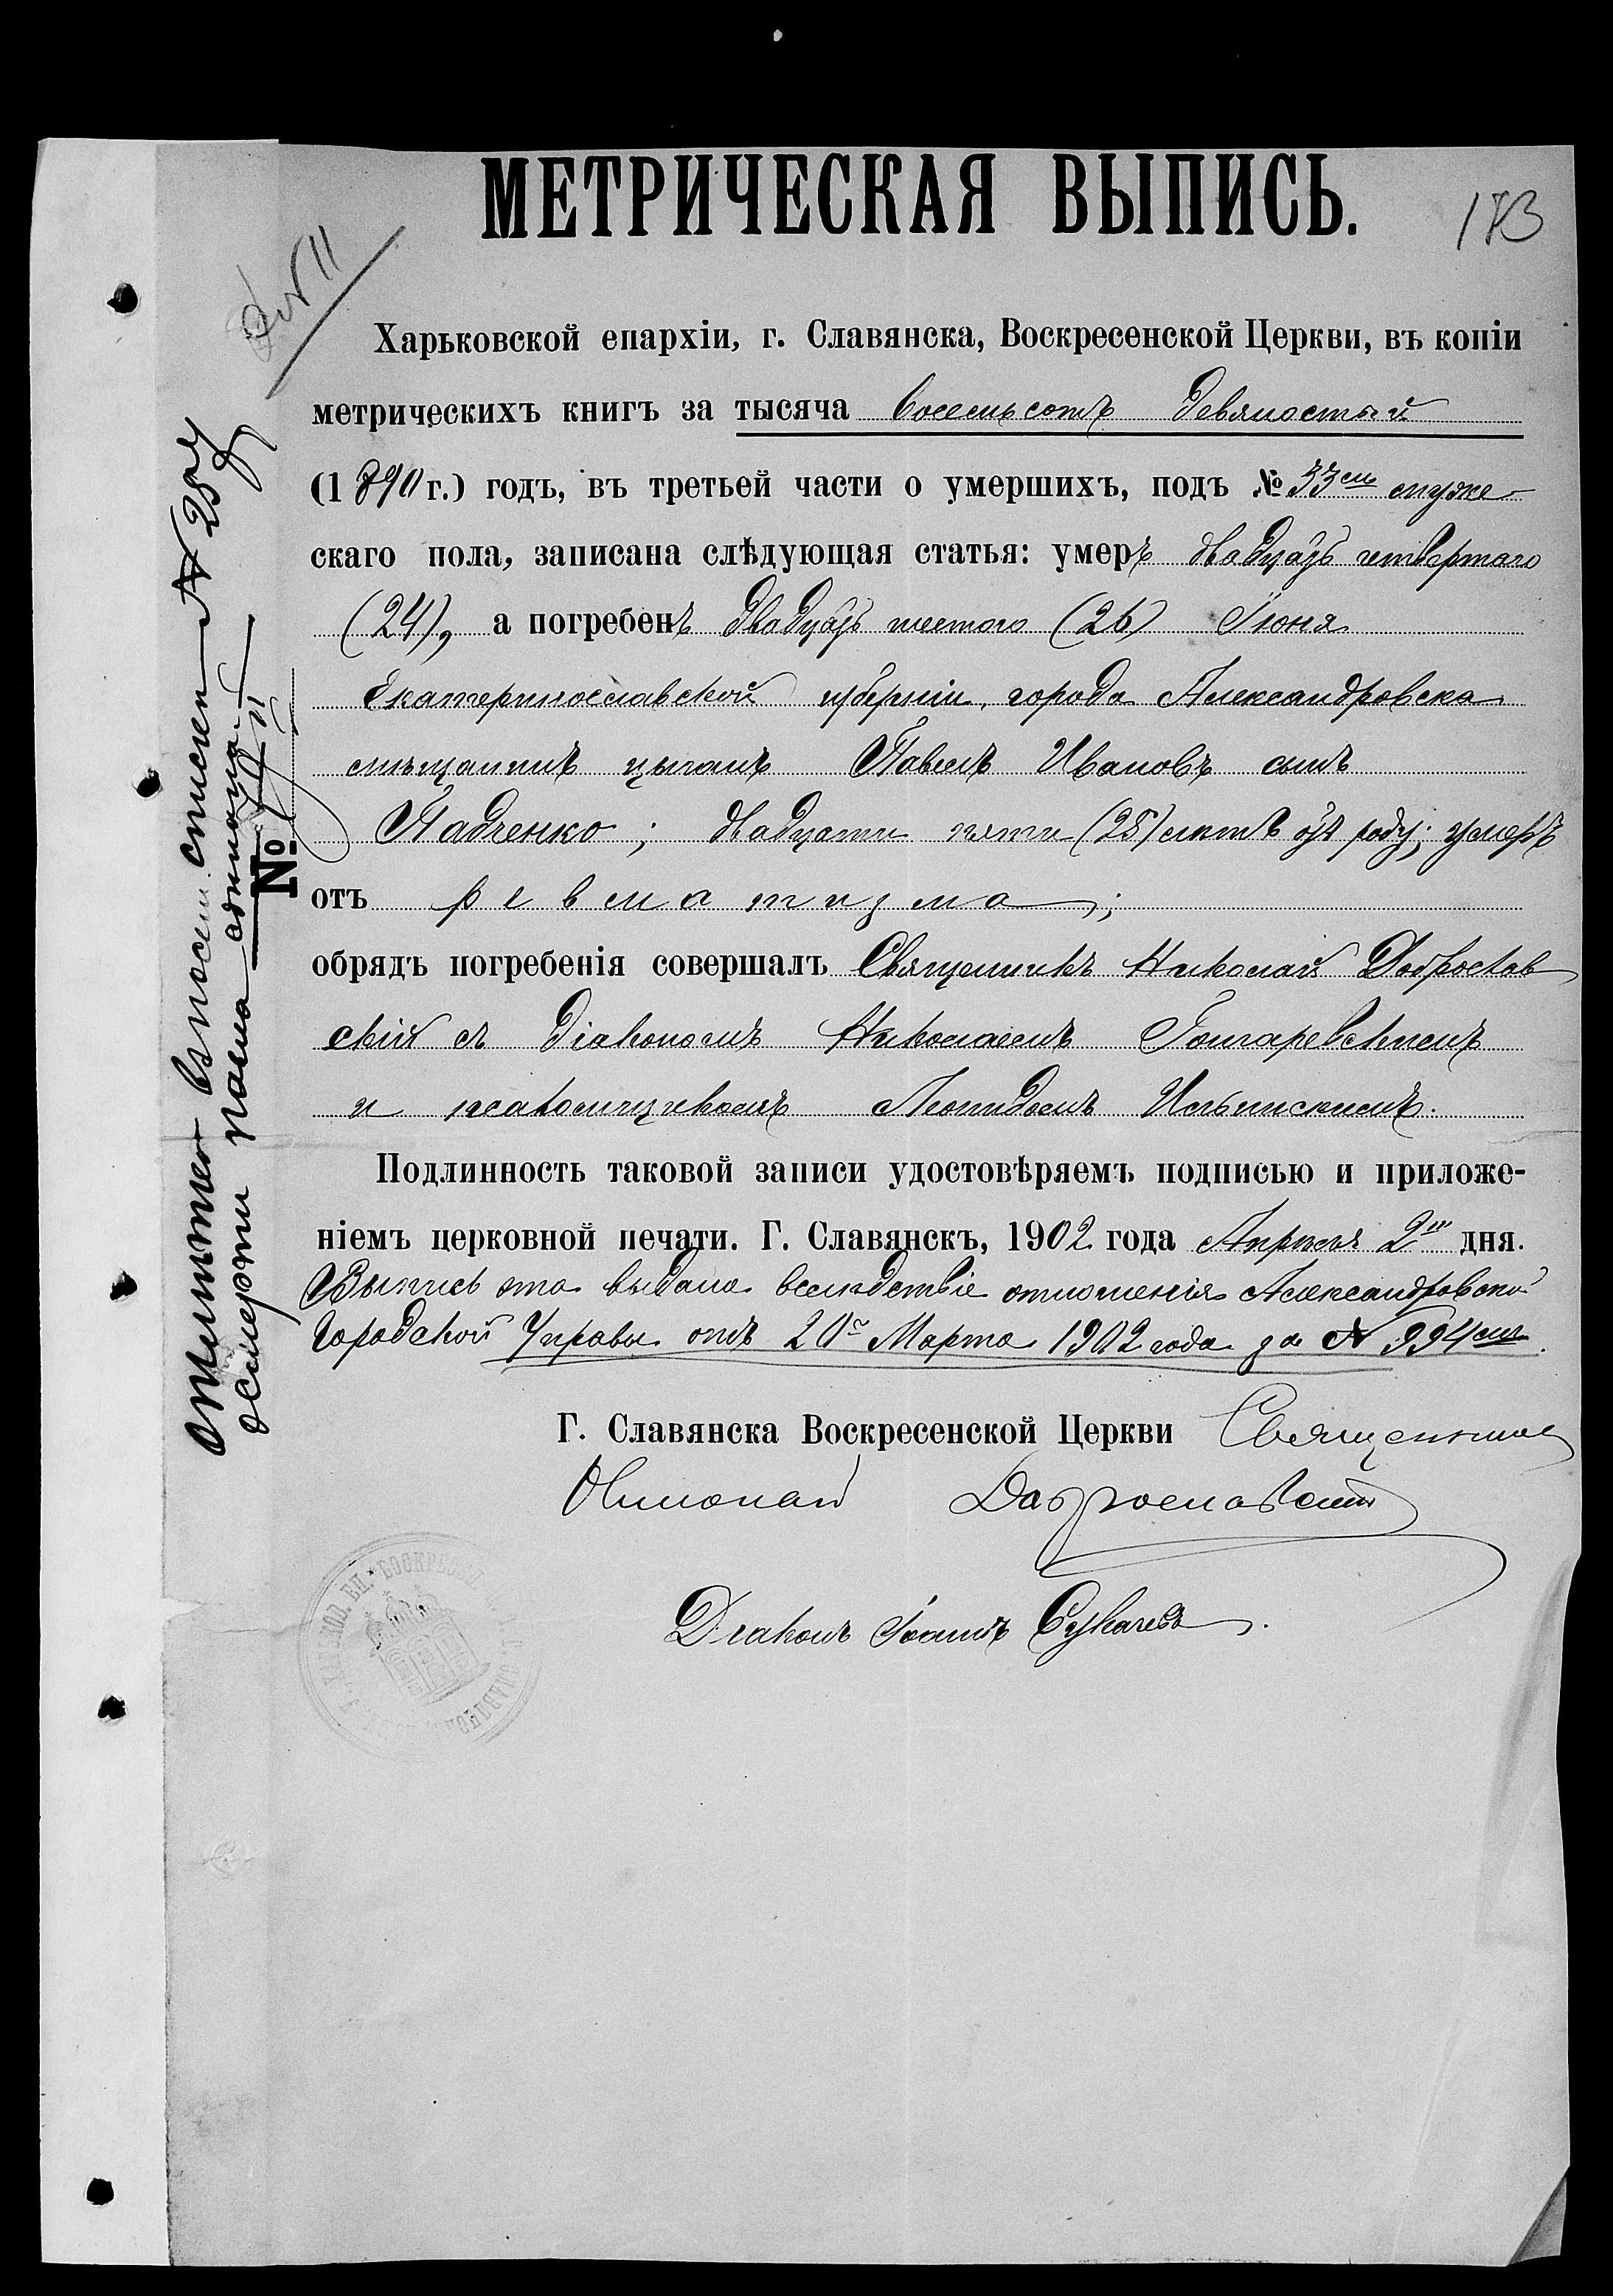 МЕТРИЧЕСКАЯ ВЫПИСЬ.
173
Харьковской епархіи, г. Славянска, Воскресенской Церкви, въ копіи
метрическихъ книгъ за тысяча восемьсотъ девяностый
(1890 г.) годъ, въ третьей части о умершихъ, подъ № 33мъ муже-
скаго пола, записана слѣдующая статья: умеръ двадцать четвертаго
(24), а погребенъ двадцать шестого (26) Іюня
Екатеринославской губерніи, города Александровска
мѣщанинъ цыганъ Павелъ Ивановъ сынъ
Падченко; двадцати пяти (25) лѣтъ отъ роду; умеръ
отъ ревматизма;
обрядъ погребенія совершалъ Священникъ Николай Доброслав
скій съ Діакономъ Николаемъ Гончаревскимъ
и псаломщикомъ Леонидомъ
Подлинность таковой записи удостовѣряемъ подписью и приложе-
ніемъ церковной печати. Г. Славянскъ, 1902 года Апрѣля 2го дня.
Выпись эта выдана вслѣдствіе отношенія Александровской
Городской Управы отъ 20го Марта 1902 года за № 994мъ.
Г. Славянска Воскресенской Церкви Священникъ
Николай Доброславскій
Діаконъ Іоаннъ
№ 11
посем. списке № 257
о смерти
№